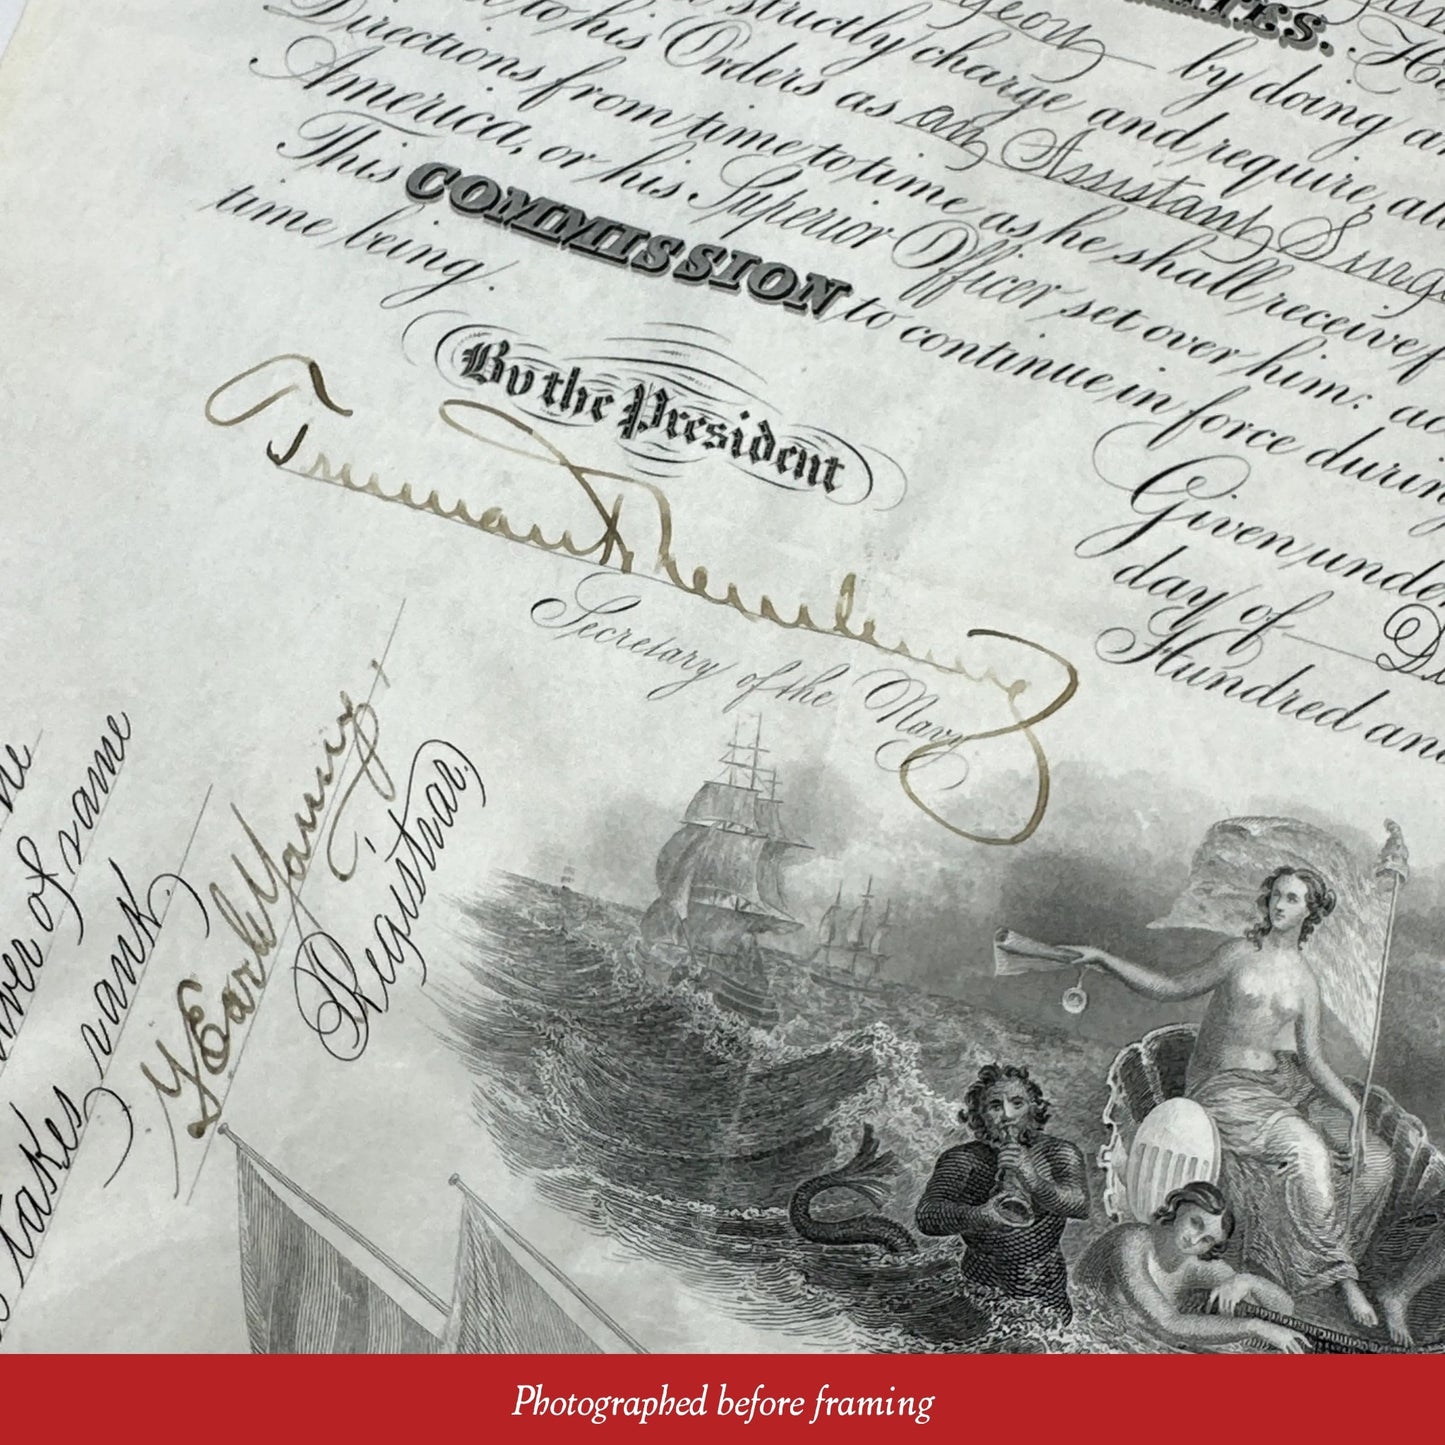 TES.
geon by doing an
strictly charge and require, all
to his Orders as an Assistant Surge
Directions from time to time as he shall receive f
America, or his Superior Officer set over him:
This COMMISSION to continue in force during
time being.
By the President
Truman H. Newberry
Secretary of the Navy.
Given, under
day of
Hundred and
of name
takes rank
Registrar.
Photographed before framing